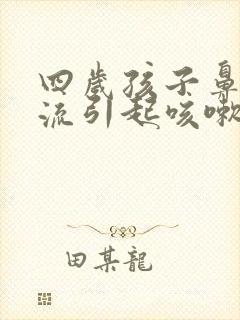 四歲孩子鼻
流引起咳嗽
田某龍